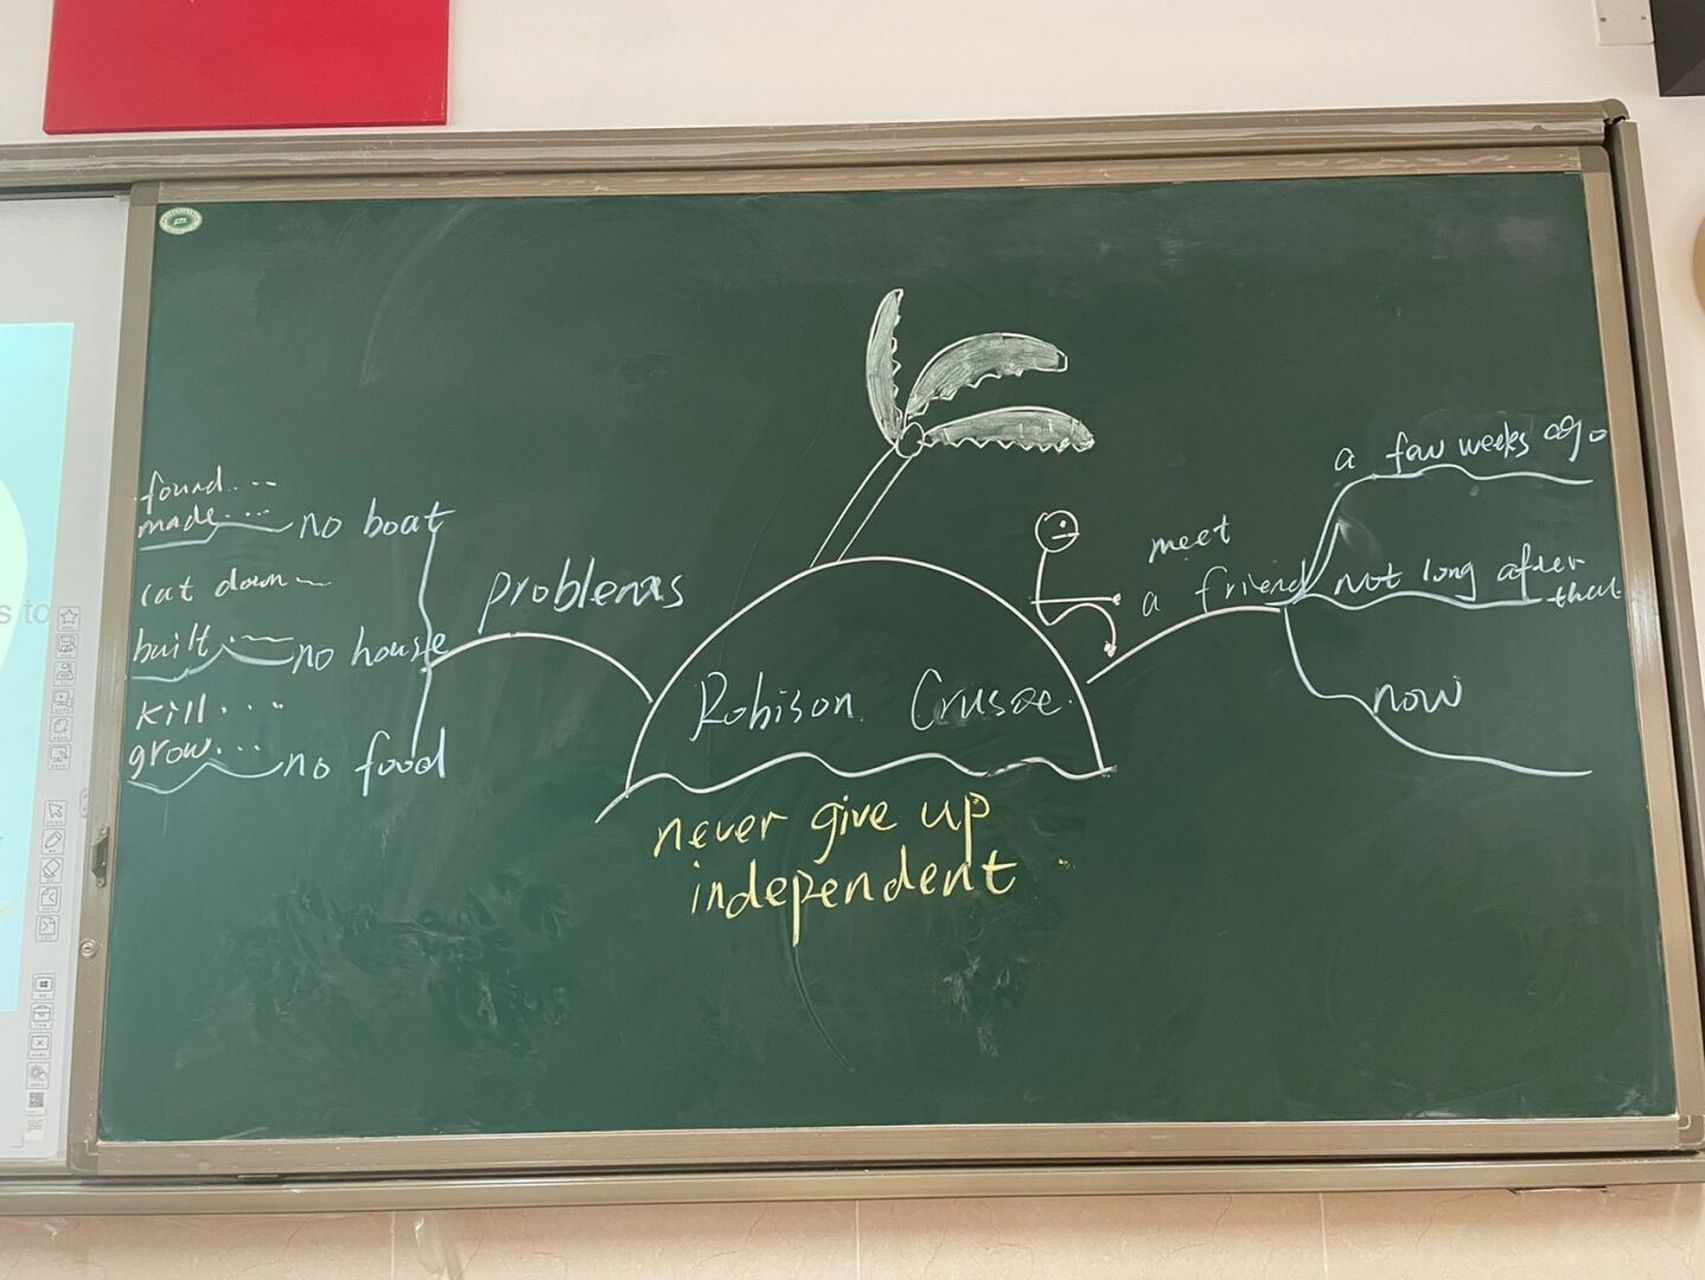 found....
made....
no boat
cut down
built
no house
kill....
grow...
no food
problems
Robison Crusoe
never give up
independent
meet
a friend
a few weeks ago
not long after
that
now
s to